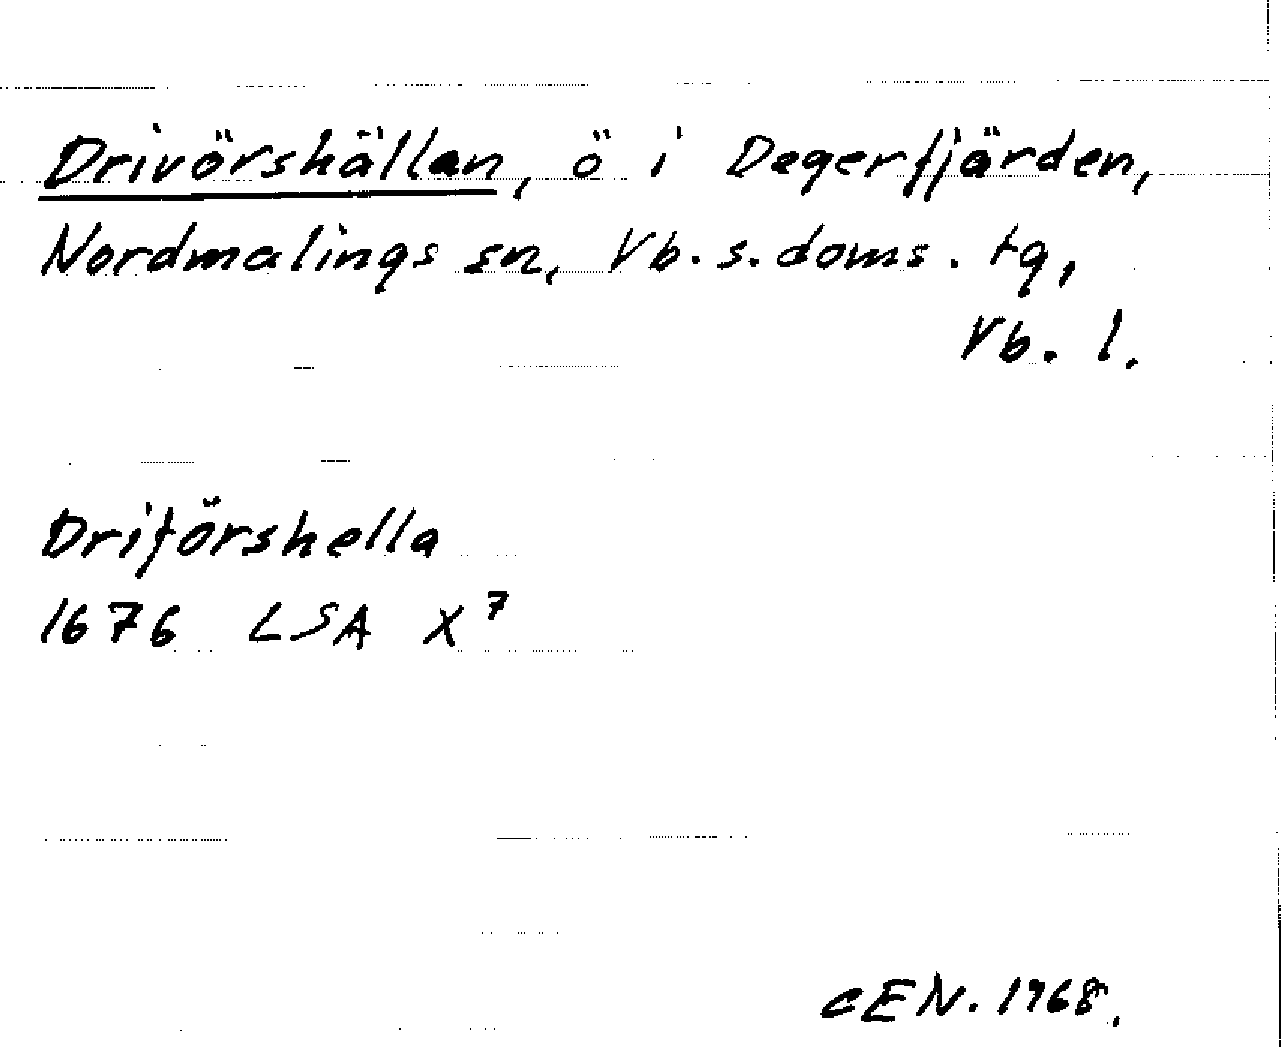 Drivörshällan, ö i Degerfjärden,
Nordmalings sn, Vb. s. doms. tg,
Vb. l.
Driförshella
1676 LSA X⁷
CEN. 1968.